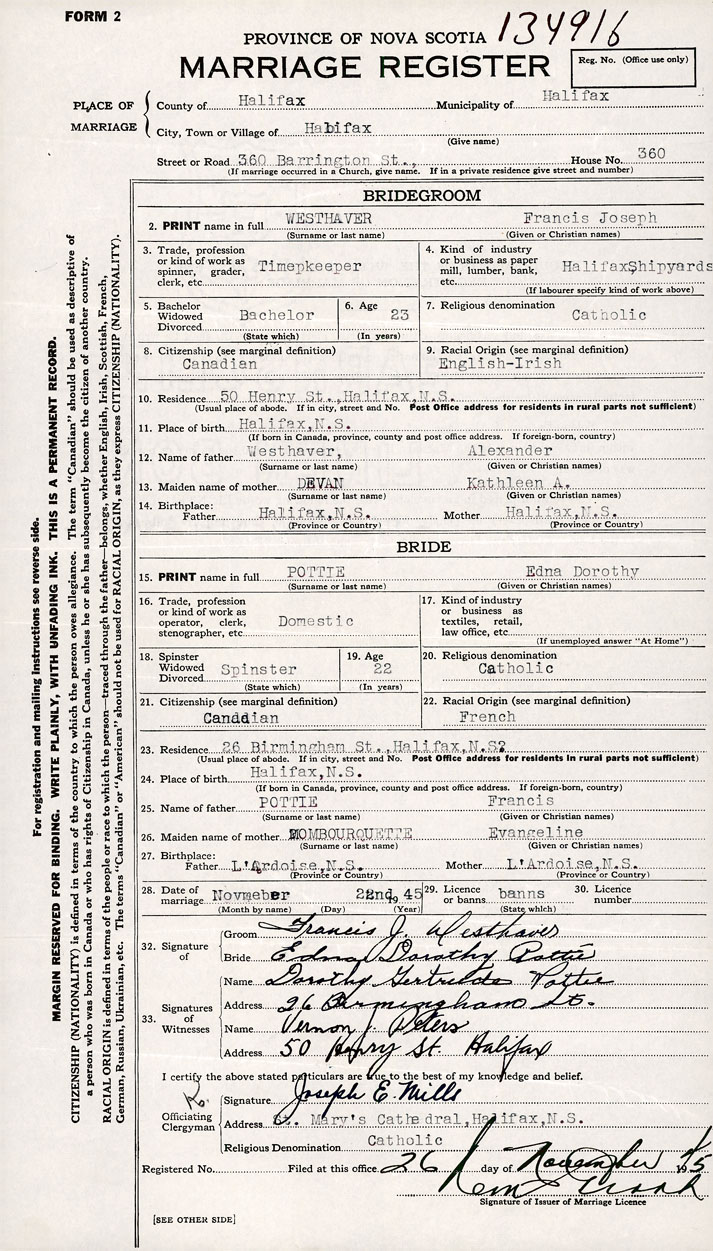 FORM 2
134916
PROVINCE OF NOVA SCOTIA
MARRIAGE REGISTER
Reg. No. (Office use only)
PLACE OF MARRIAGE
County of Halifax Municipality of Halifax
City, Town or Village of Habifax
(Give name)
Street or Road 360 Barrington St., House No. 360
(If marriage occurred in a Church, give name. If in a private residence give street and number)
BRIDEGROOM
2. PRINT name in full WESTHAVER Francis Joseph
(Surname or last name) (Given or Christian names)
3. Trade, profession or kind of work as spinner, grader, clerk, etc. Timepkeeper
4. Kind of industry or business as paper mill, lumber, bank, etc. HalifaxShipyards
(If labourer specify kind of work above)
5. Bachelor Widowed Divorced Bachelor
(State which)
6. Age 23
(In years)
7. Religious denomination
Catholic
8. Citizenship (see marginal definition)
Canadian
9. Racial Origin (see marginal definition)
English-Irish
10. Residence 50 Henry St., Halifax, N.S.
(Usual place of abode. If in city, street and No. Post Office address for residents in rural parts not sufficient)
11. Place of birth Halifax, N.S.
(If born in Canada, province, county and post office address. If foreign-born, country)
12. Name of father Westhaver, Alexander
(Surname or last name) (Given or Christian names)
13. Maiden name of mother DEVAN Kathleen A.
(Surname or last name) (Given or Christian names)
14. Birthplace:
Father Halifax, N.S. Mother Halifax, N.S.
(Province or Country) (Province or Country)
BRIDE
15. PRINT name in full POTTIE Edna Dorothy
(Surname or last name) (Given or Christian names)
16. Trade, profession or kind of work as operator, clerk, stenographer, etc. Domestic
17. Kind of industry or business as textiles, retail, law office, etc.
(If unemployed answer "At Home")
18. Spinster Widowed Divorced Spinster
(State which)
19. Age 22
(In years)
20. Religious denomination
Catholic
21. Citizenship (see marginal definition)
Canddian
22. Racial Origin (see marginal definition)
French
23. Residence 26 Birmingham St., Halifax, N.S?
(Usual place of abode. If in city, street and No. Post Office address for residents in rural parts not sufficient)
24. Place of birth Halifax, N.S.
(If born in Canada, province, county and post office address. If foreign-born, country)
25. Name of father POTTIE Francis
(Surname or last name) (Given or Christian names)
26. Maiden name of mother MOMBOURQUETTE Evangeline
(Surname or last name) (Given or Christian names)
27. Birthplace:
Father L'Ardoise, N.S. Mother L'Ardoise, N.S.
(Province or Country) (Province or Country)
28. Date of marriage Novmeber 22nd, 1945
(Month by name) (Day) (Year)
29. Licence or banns banns
(State which)
30. Licence number
32. Signature of
Groom Francis J. Westhaver
Bride Edna Dorothy Pottie
33. Signatures of Witnesses
Name Dorothy Gertrude Pottie
Address 26 Birmingham St.
Name Vernon J. Peters
Address 50 Henry St. Halifax
I certify the above stated particulars are true to the best of my knowledge and belief.
Officiating Clergyman
Signature Joseph E. Mills
Address St. Mary's Cathedral, Halifax, N.S.
Religious Denomination Catholic
Registered No. Filed at this office 26 day of November 1945
Signature of Issuer of Marriage Licence
[SEE OTHER SIDE]
For registration and mailing instructions see reverse side.
MARGIN RESERVED FOR BINDING. WRITE PLAINLY, WITH UNFADING INK. THIS IS A PERMANENT RECORD.
CITIZENSHIP (NATIONALITY) is defined in terms of the country to which the person owes allegiance. The term "Canadian" should be used as descriptive of
a person who was born in Canada or who has rights of Citizenship in Canada, unless he or she has subsequently become the citizen of another country.
RACIAL ORIGIN is defined in terms of the people or race to which the person—traced through the father—belongs, whether English, Irish, Scottish, French,
German, Russian, Ukrainian, etc. The terms "Canadian" or "American" should not be used for RACIAL ORIGIN, as they express CITIZENSHIP (NATIONALITY).